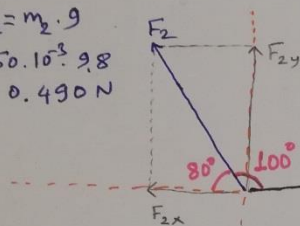 = m₂ · g
50.10⁻³. 9,8
0.490 N
F₂
F₂y
80°
100°
F₂x